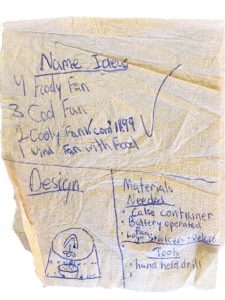 Name Ideas
4 Foody Fan
3 Cool Fan
1 Wind Fan with Food
Design
Materials
Needed
• Cake container
• Battery operated
fan
Tools
• hand held drill